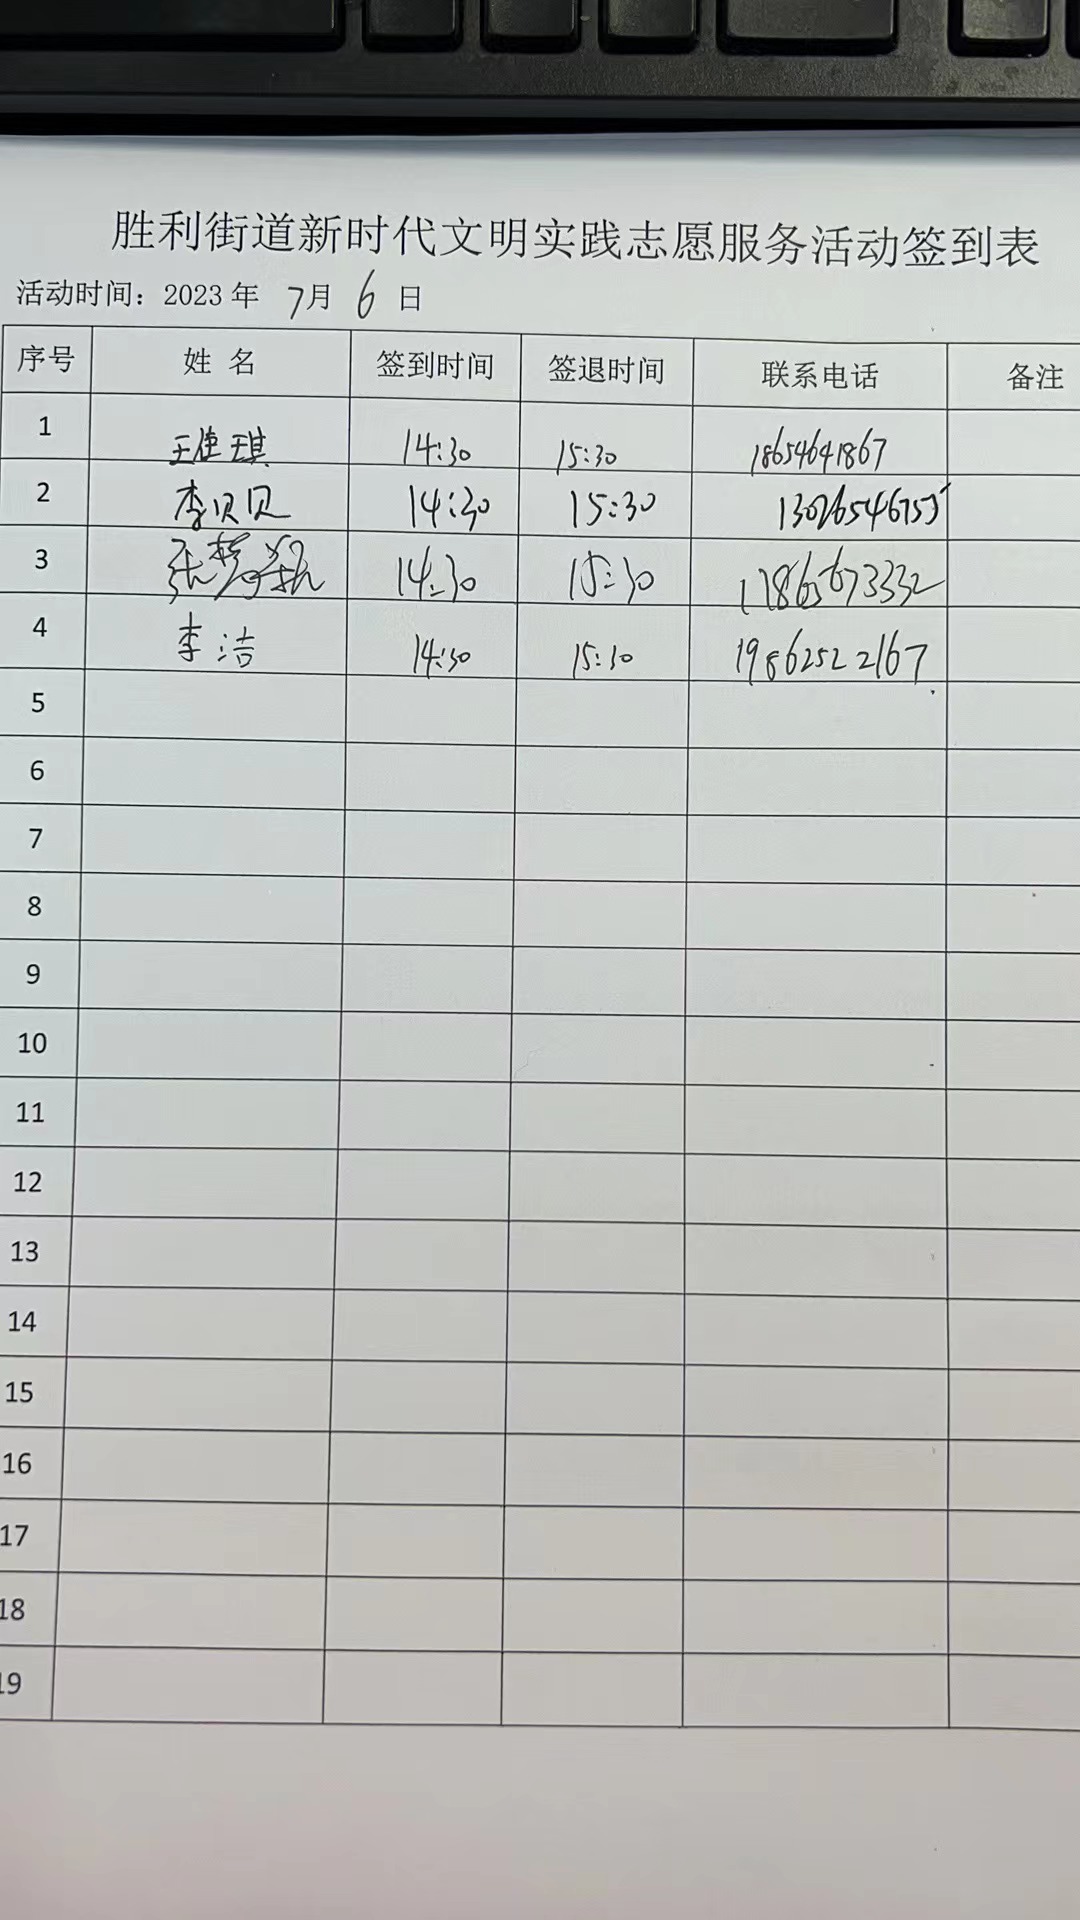 胜利街道新时代文明实践志愿服务活动签到表
活动时间：2023 年 7月 6 日
序号 姓 名 签到时间 签退时间 联系电话 备注
1 王佳琪 14:30 15:30 18654641867
2 李贝贝 14:30 15:30
3 14:30 15:30 17865673332
4 李洁 14:30 15:30 19862522167
5
6
7
8
9
10
11
12
13
14
15
16
17
18
19